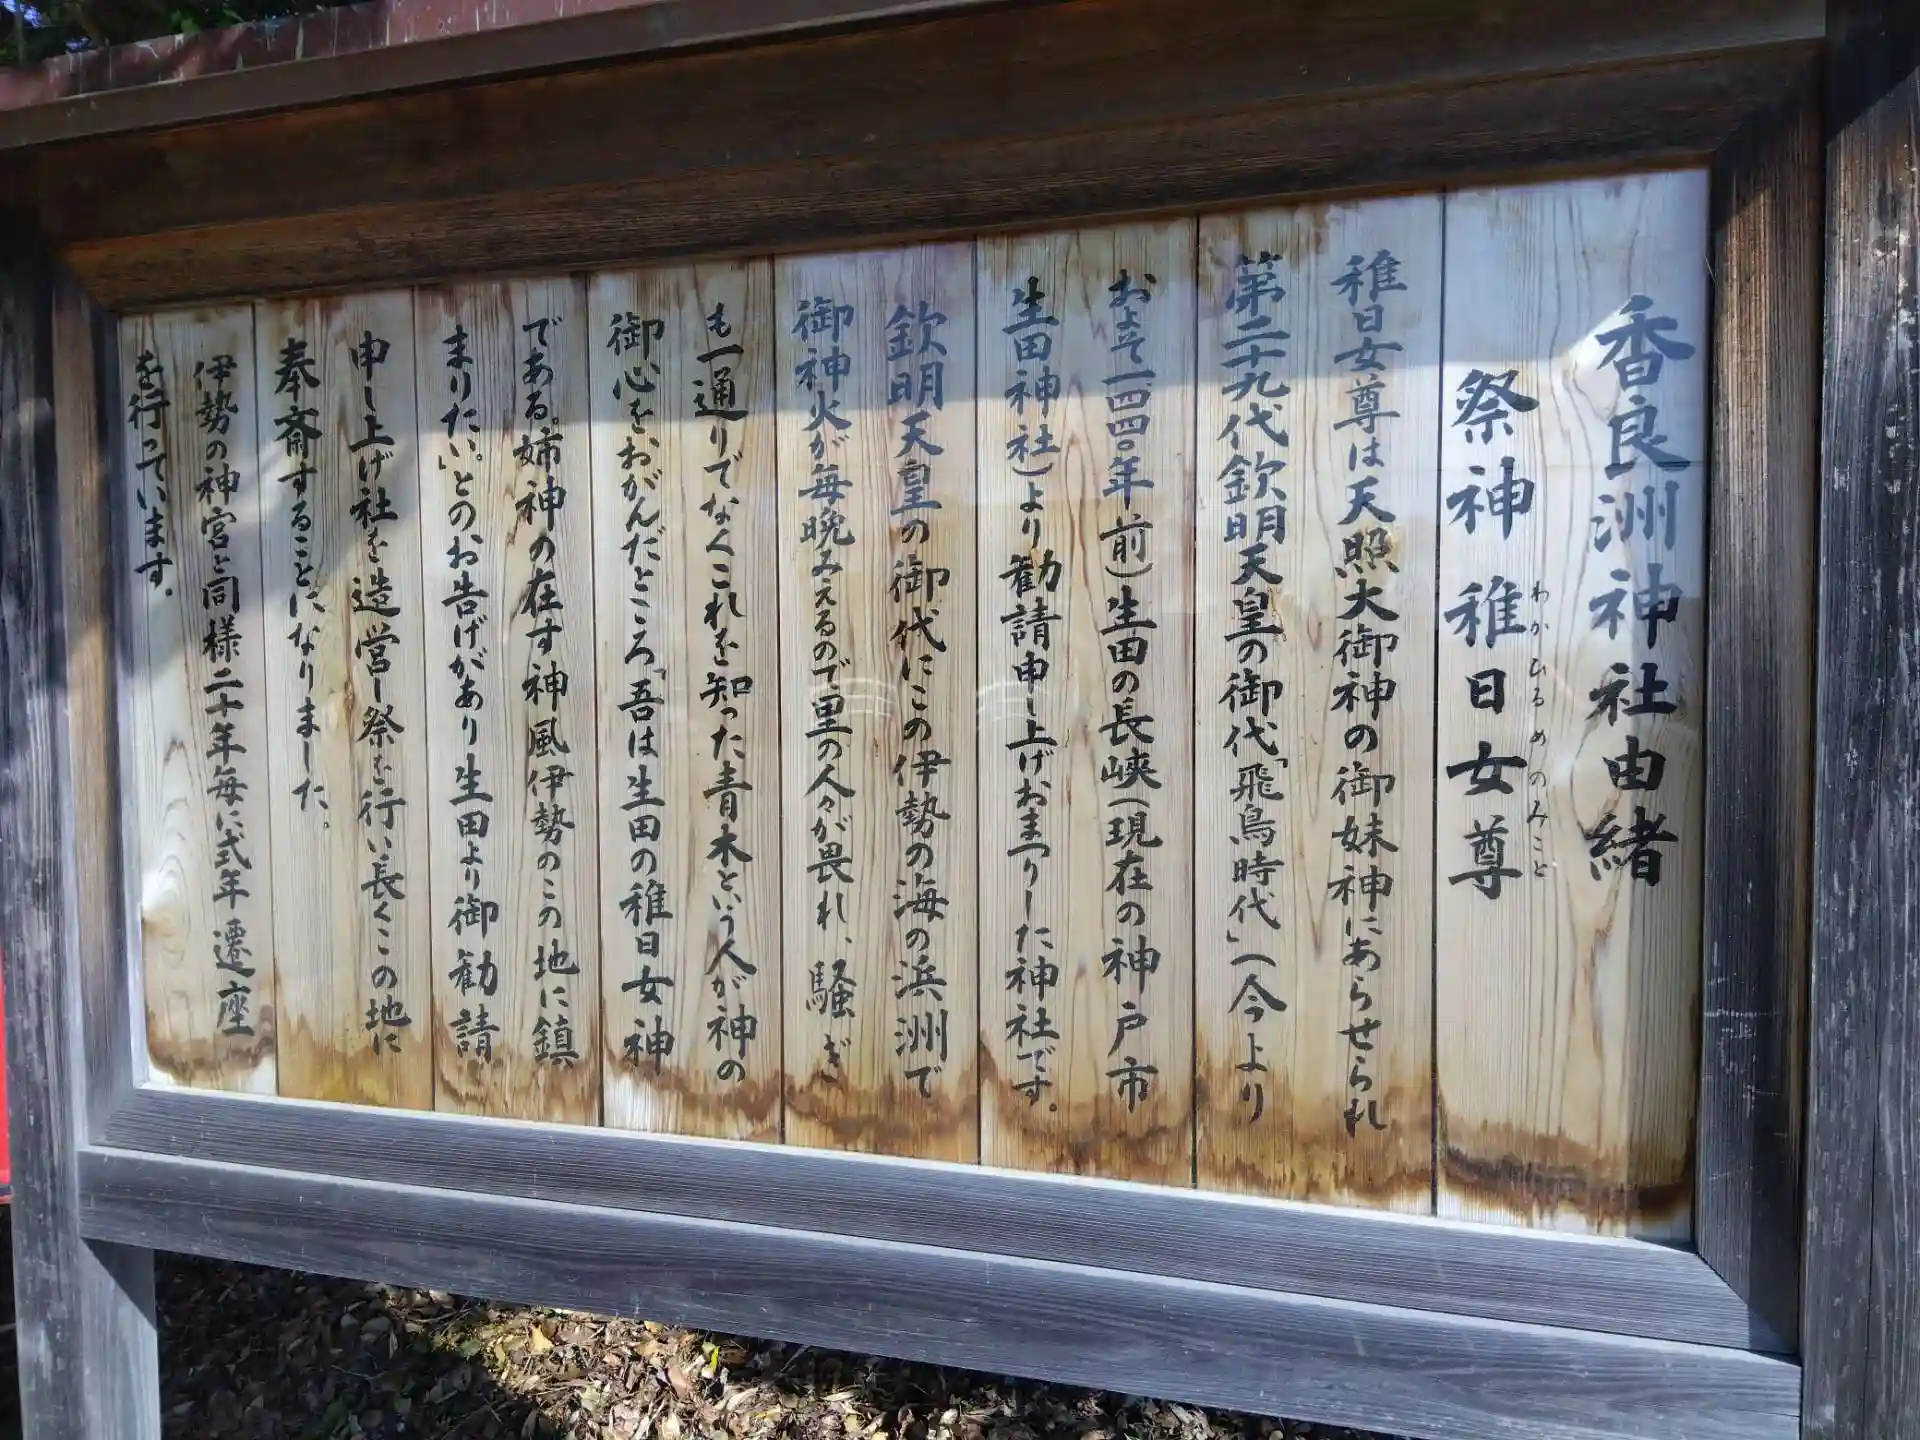 香良洲神社由緒
祭神 稚日女尊
わかひるめのみこと
稚日女尊は天照大御神の御妹神にあらせられ
第二十九代欽明天皇の御代「飛鳥時代」(今より
およそ一四四〇年前)生田の長峡(現在の神戸市
生田神社)より勧請申し上げおまつりした神社です。
欽明天皇の御代にこの伊勢の海の浜洲で
御神火が毎晩みえるので里の人々が畏れ、騒ぎ
も一通りでなくこれを知った青木という人が神の
御心をおがんだところ「吾は生田の稚日女神
である。姉神の在す神風伊勢のこの地に鎮
まりたい。」とのお告げがあり生田より御勧請
申し上げ社を造営し祭を行い長くこの地に
奉斎することになりました。
伊勢の神宮と同様二十年毎に式年遷座
を行っています。